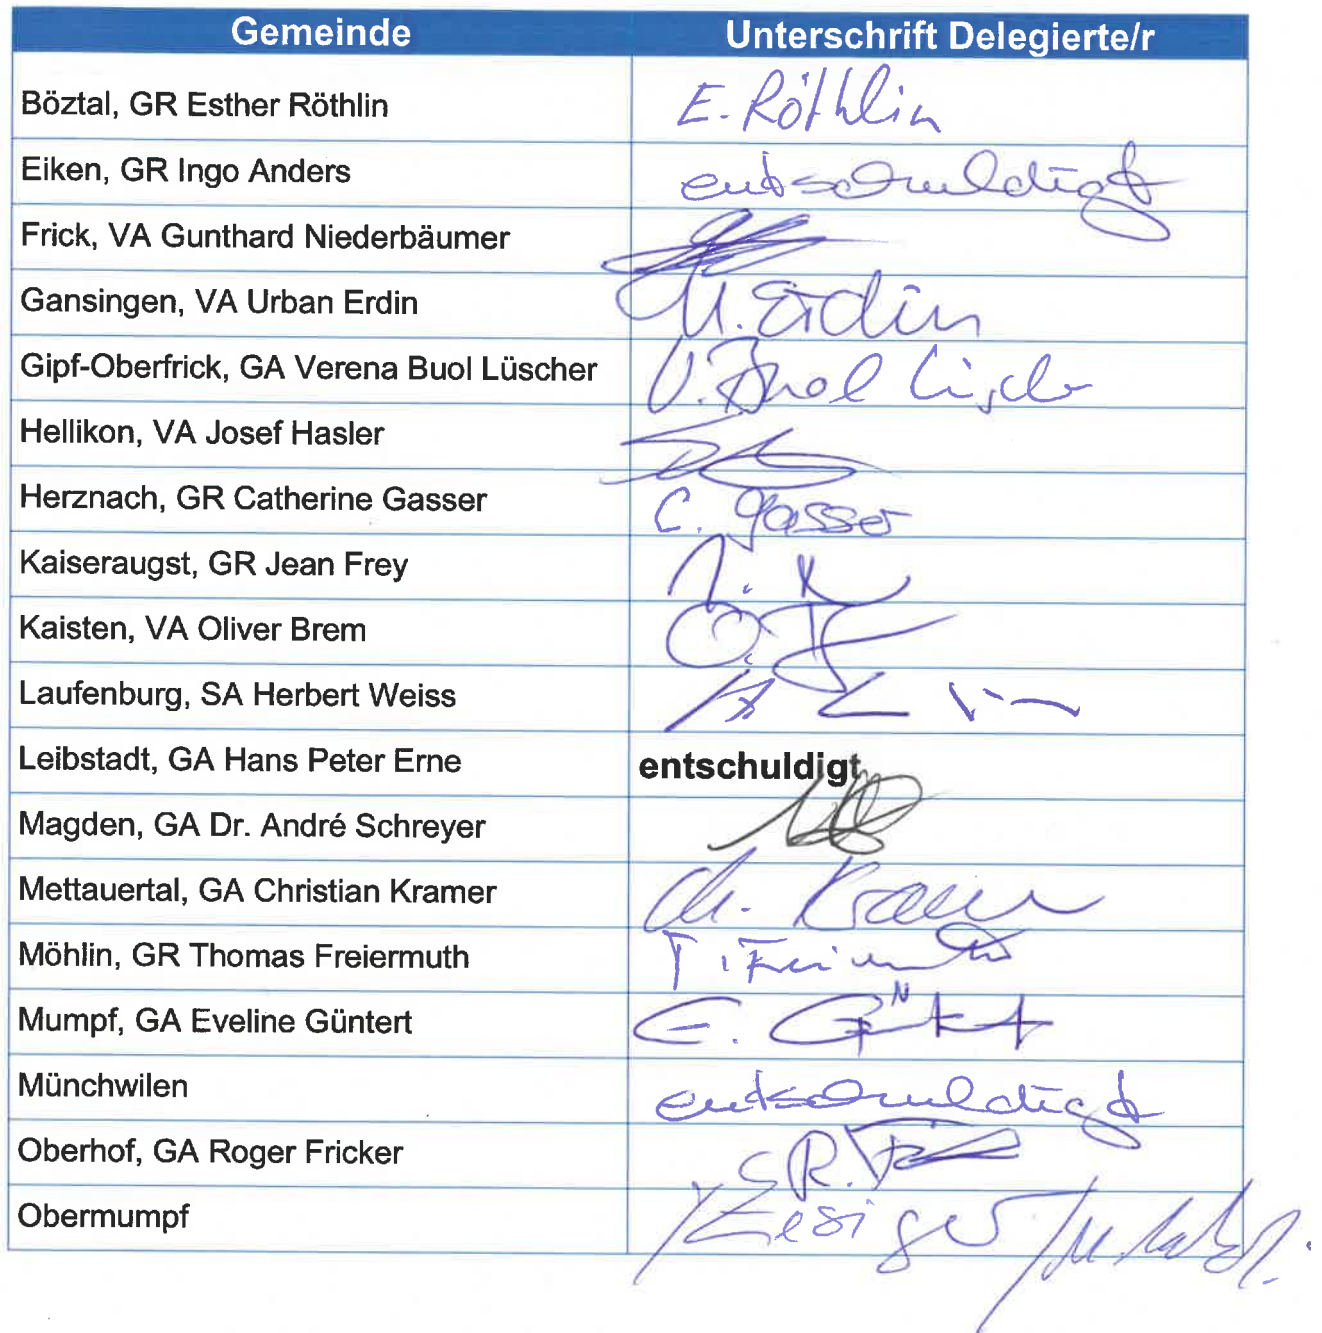 Gemeinde Unterschrift Delegierte/r
Böztal, GR Esther Röthlin E. Röthlin
Eiken, GR Ingo Anders entschuldigt
Frick, VA Gunthard Niederbäumer
Gansingen, VA Urban Erdin U. Erdin
Gipf-Oberfrick, GA Verena Buol Lüscher V. Buol Lüscher
Hellikon, VA Josef Hasler
Herznach, GR Catherine Gasser C. Gasser
Kaiseraugst, GR Jean Frey
Kaisten, VA Oliver Brem
Laufenburg, SA Herbert Weiss
Leibstadt, GA Hans Peter Erne entschuldigt
Magden, GA Dr. André Schreyer
Mettauertal, GA Christian Kramer Ch. Kramer
Möhlin, GR Thomas Freiermuth
Mumpf, GA Eveline Güntert E. Güntert
Münchwilen entschuldigt
Oberhof, GA Roger Fricker
Obermumpf